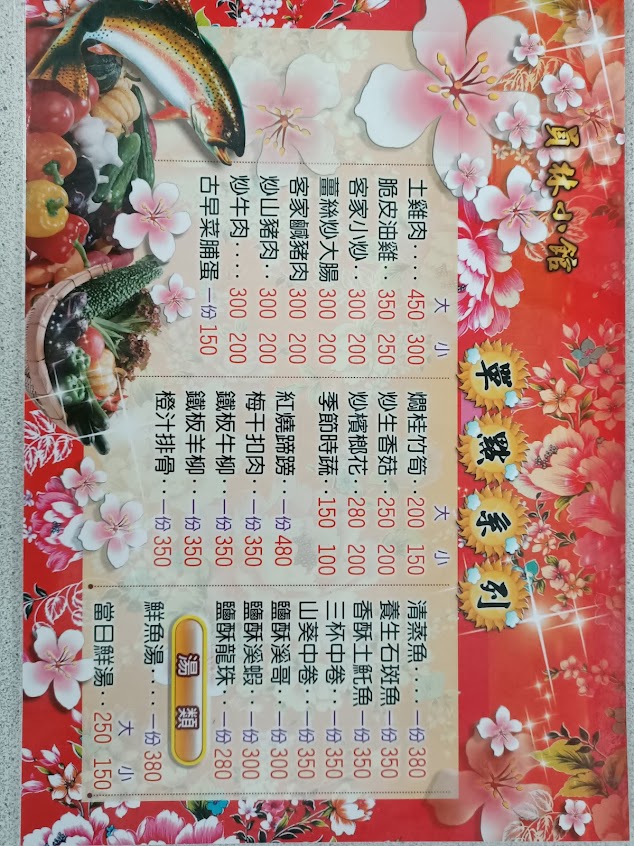 員林小館
單點系列
大 小
土雞肉.... 450 300
脆皮油雞.. 350 250
客家小炒.. 300 200
薑絲炒大腸 300 200
客家鹹豬肉 300 200
炒山豬肉.. 300 200
炒牛肉... 300 200
古早菜脯蛋 一份 150
大 小
燜桂竹筍.. 200 150
炒生香菇.. 250 200
炒檳榔花.. 280 200
季節時蔬.. 150 100
紅燒蹄膀.. 一份 480
梅干扣肉.. 一份 350
鐵板牛柳.. 一份 350
鐵板羊柳.. 一份 350
橙汁排骨.. 一份 350
清蒸魚.... 一份 380
養生石斑魚 一份 350
香酥土魠魚 一份 350
三杯中卷.. 一份 350
山葵中卷.. 一份 350
鹽酥溪哥.. 一份 300
鹽酥溪蝦.. 一份 300
鹽酥龍珠.. 一份 280
湯類
鮮魚湯.... 一份 380
大 小
當日鮮湯.. 250 150